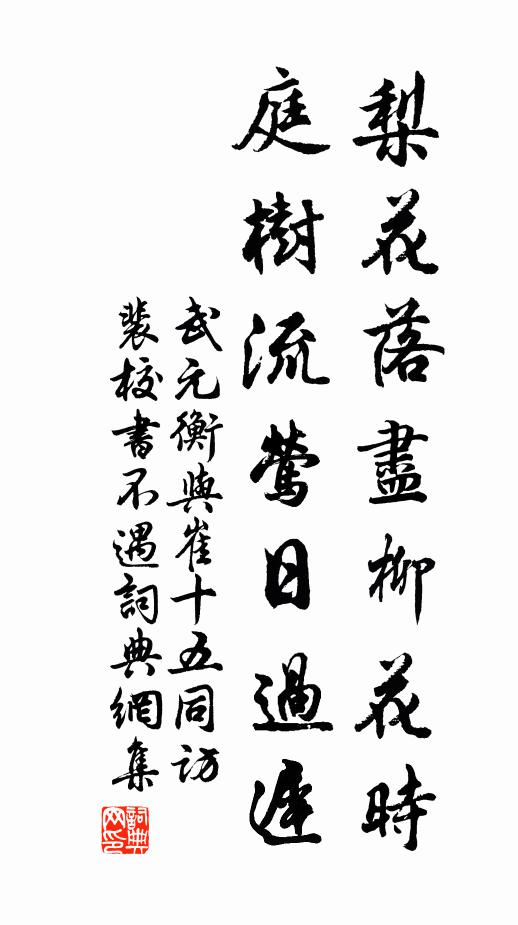 梨花落盡柳花時
庭樹流鶯日過遲
武元衡與崔十五同訪
裴校書不遇詞典網集
詞典
网印